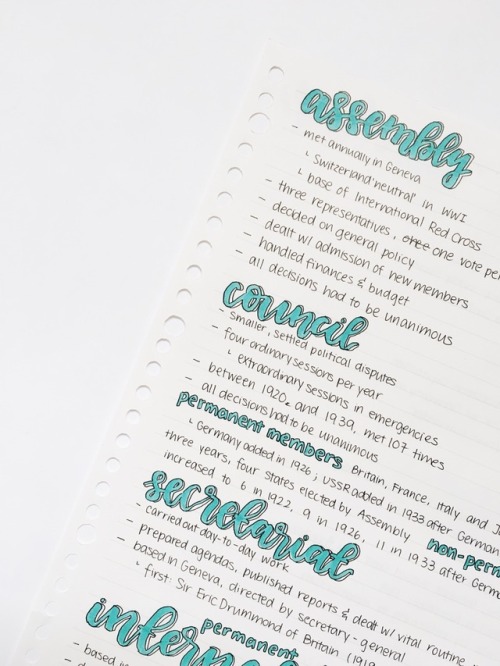 assembly
- met annually in Geneva
ˋ Switzerland 'neutral' in WWI
ˋ base of International Red Cross
- three representatives, one vote per
- decided on general policy
- dealt w/ admission of new members
- handled finances & budget
- all decisions had to be unanimous
council
- smaller, settled political disputes
- four ordinary sessions per year
ˋ extraordinary sessions in emergencies
- between 1920 and 1939, met 107 times
- all decisions had to be unanimous
permanent members Britain, France, Italy and
ˋ Germany added in 1926; USSR added in 1933 after German
three years, four states elected by Assembly non-perm
increased to 6 in 1922, 9 in 1926, 11 in 1933 after Germ
secretariat
- carried out day-to-day work
- prepared agendas, published reports & dealt w/ vital routine
- based in Geneva, directed by secretary-general
ˋ first: Sir Eric Drummond of Britain (191
permanent
- based in